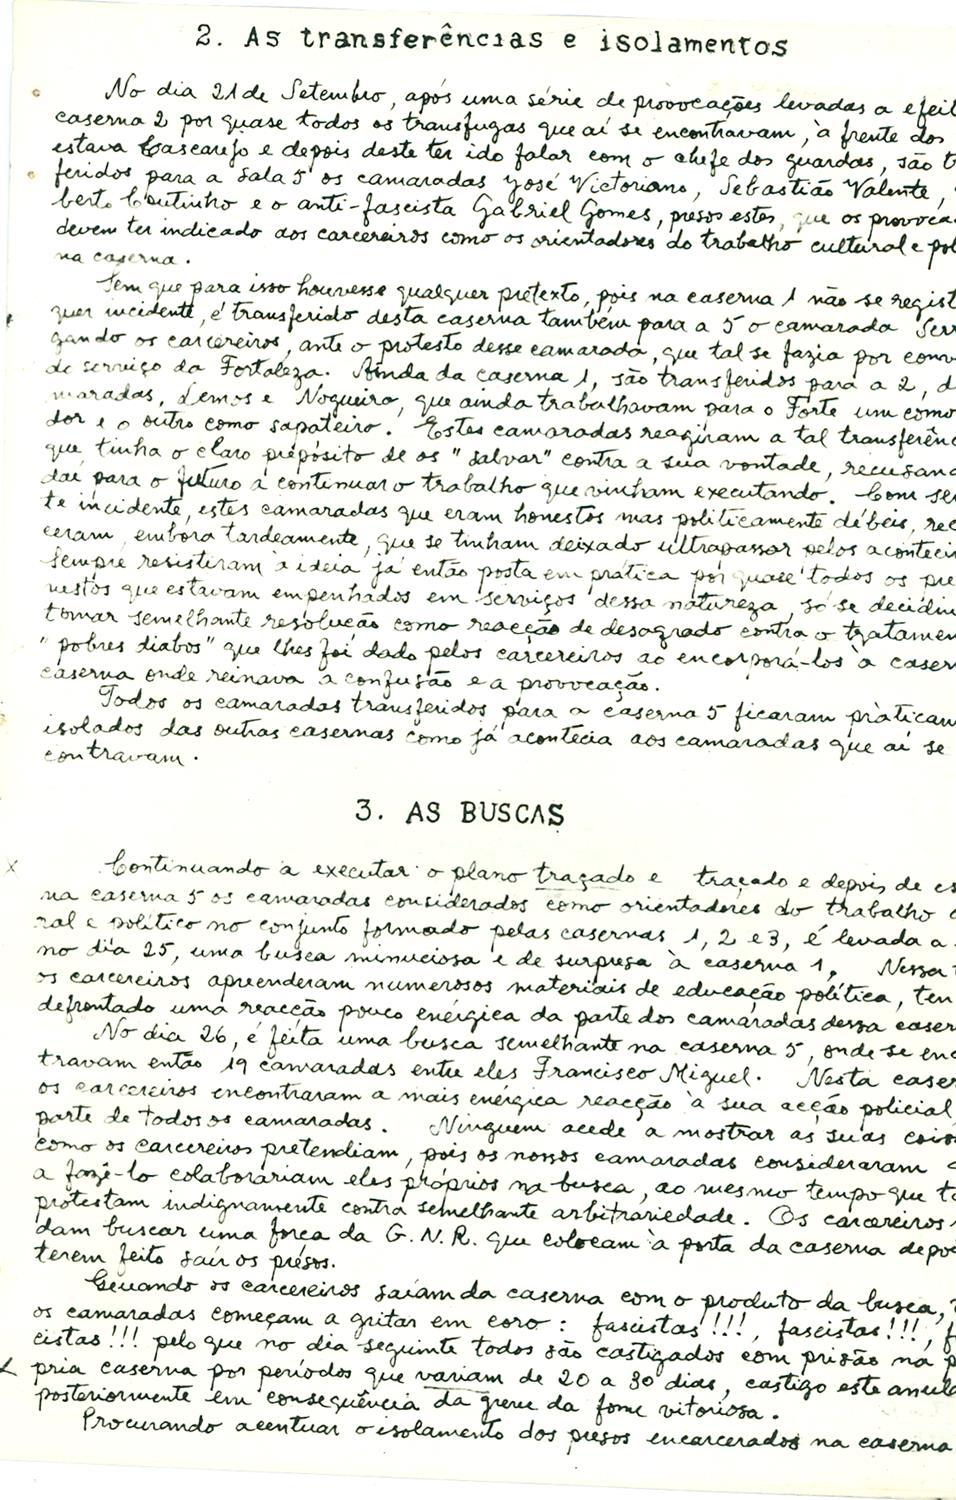 2. As transferências e isolamentos
No dia 21 de Setembro, após uma série de provocações levadas a efeit
caserna 2 por quase todos os transfugas que aí se encontravam, à frente dos
estava Cascarejo e depois deste ter ido falar com o chefe dos guardas, são t
feridos para a sala 5 os camaradas José Victoriano, Sebastião Valente,
berto Coutinho e o anti-fascista Gabriel Gomes, presos estes, que os provoca
devem ter indicado aos carcereiros como os orientadores do trabalho cultural e pol
na caserna.
Sem que para isso houvesse qualquer pretexto, pois na caserna 1 não se regist
quer incidente, é transferido desta caserna também para a 5 o camarada Serr
gando os carcereiros, ante o protesto desse camarada, que tal se fazia por conv
de serviço da Fortaleza. Ainda da caserna 1, são transferidos para a 2, d
maradas, Lemos e Nogueira, que ainda trabalhavam para o Forte um como
dor e o outro como sapateiro. Estes camaradas reagiram a tal transferênc
que tinha o claro prépósito de os "salvar" contra a sua vontade, recusand
daí para o futuro a continuar o trabalho que vinham executando. Com se
te incidente, estes camaradas que eram honestos mas politicamente débeis, rec
ceram, embora tardeamente, que se tinham deixado ultrapassar pelos acontecim
Sempre resistiram à ideia já então posta em prática por quase todos os pre
nestos que estavam empenhados em serviços dessa natureza, só se decidin
tomar semelhante resolução como reacção de desagrado contra o tratamen
"pobres diabos" que lhes foi dado pelos carcereiros ao encorporá-los à casern
caserna onde reinava a confusão e a provocação.
Todos os camaradas transferidos para a caserna 5 ficaram pràticam
isolados das outras casernas como já acontecia aos camaradas que aí se
contravam.
3. AS BUSCAS
Continuando a executar o plano traçado e traçado e depois de es
na caserna 5 os camaradas considerados como orientadores do trabalho c
ral e político no conjunto formado pelas casernas 1, 2 e 3, é levada a
no dia 25, uma busca minuciosa e de surpresa à caserna 1. Nessa
os carcereiros apreenderam numerosos materiais de educação política, ten
defrontado uma reacção pouco enérgica da parte dos camaradas dessa caser
No dia 26, é feita uma busca semelhante na caserna 5, onde se enc
travam então 19 camaradas entre eles Francisco Miguel. Nesta caser
os carcereiros encontraram a mais enérgica reacção à sua acção policial,
parte de todos os camaradas. Ninguem acede a mostrar as suas cois
como os carcereiros pretendiam, pois os nossos camaradas consideraram
a fazê-lo colaborariam eles próprios na busca, ao mesmo tempo que t
protestam indignamente contra semelhante arbitrariedade. Os carcereiros
dam buscar uma força da G.N.R. que colocam à porta da caserna depoi
terem feito sair os présos.
Quando os carcereiros saíam da caserna com o produto da busca,
os camaradas começam a gritar em coro: fascistas!!!, fascistas!!!, f
cistas!!! pelo que no dia seguinte todos são castigados com prisão na p
pria caserna por períodos que variam de 20 a 30 dias, castigo este anula
posteriormente em consequência da greve da fome vitoriosa.
Procurando acentuar o isolamento dos presos encarcerados na caserna